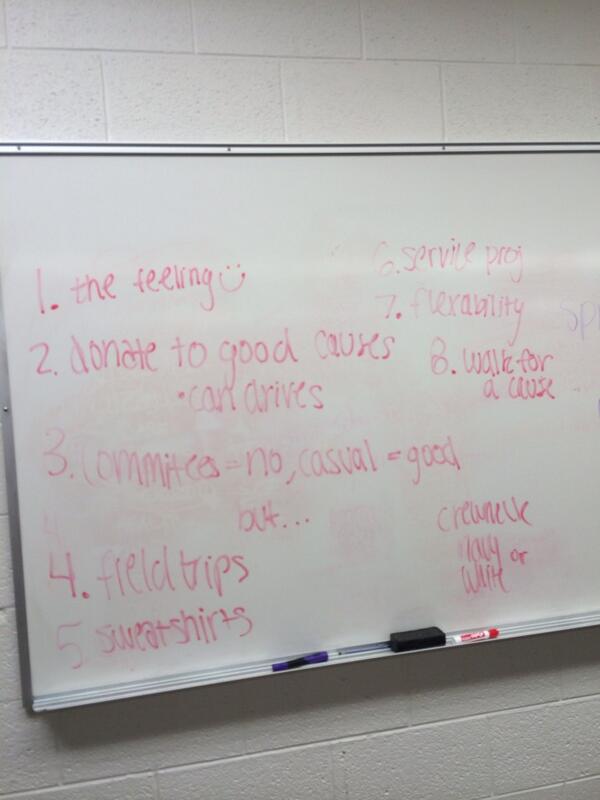 1. the feeling
2. donate to good causes
• can drives
3. Commitees = no, casual = good
but...
4. field trips
5. sweatshirts
6. service proj
7. flexability
8. walk for
a cause
crewneck
navy or
white